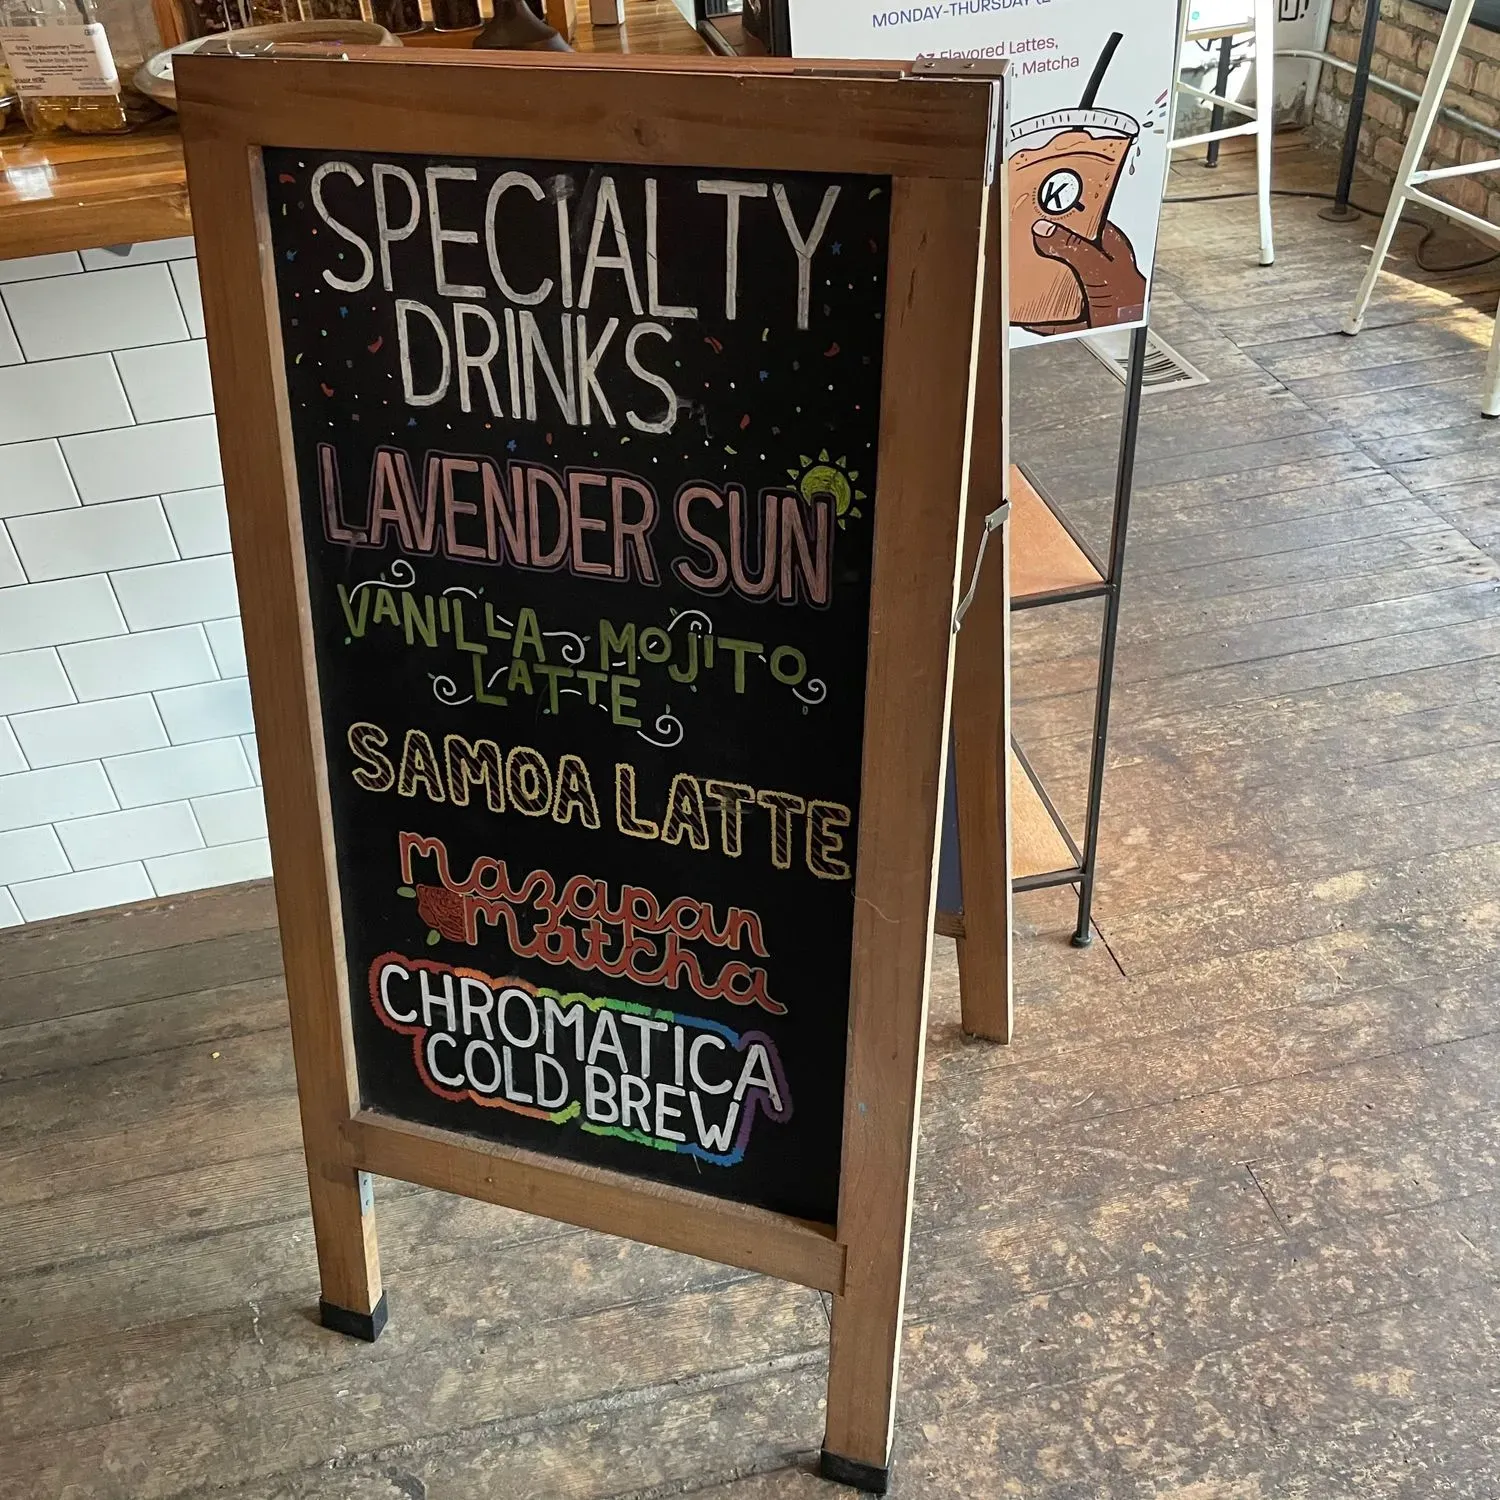 SPECIALTY
DRINKS
LAVENDER SUN
VANILLA MOJITO
LATTE
SAMOA LATTE
mazapan
matcha
CHROMATICA
COLD BREW
MONDAY-THURSDAY
Flavored Lattes,
Matcha
K